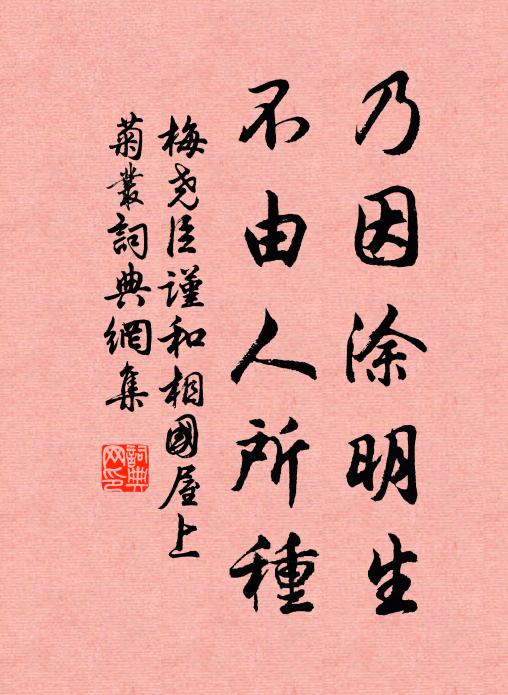 乃因涂明生
不由人所種
梅尧臣谨和相國屋上
菊叢詞典網集
詞典
网印